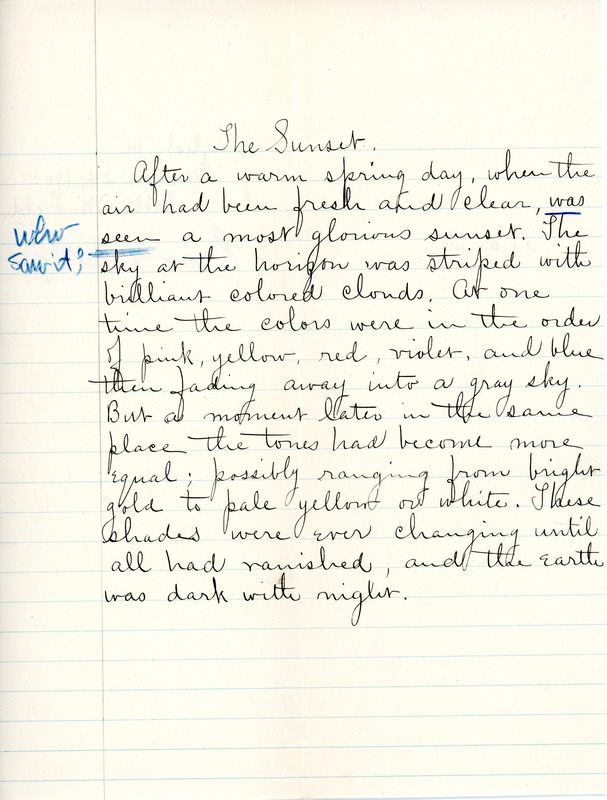 The Sunset.
After a warm spring day, when the
air had been fresh and clear, was
seen a most glorious sunset. The
who
saw it?
sky at the horizon was striped with
brilliant colored clouds. At one
time the colors were in the order
of pink, yellow, red, violet, and blue
then fading away into a gray sky.
But a moment later in the same
place the tones had become more
equal; possibly ranging from bright
gold to pale yellow or white. These
shades were ever changing until
all had vanished, and the earth
was dark with night.